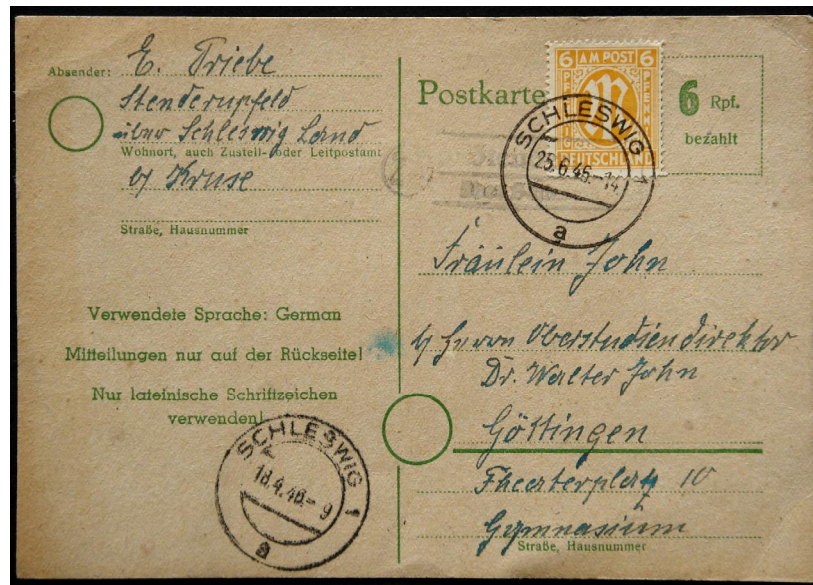 Absender: E. Triebe
Stenderupfeld
über Schleswig Land
Wohnort, auch Zustell- oder Leitpostamt
b/ Kruse
Straße, Hausnummer
Verwendete Sprache: German
Mitteilungen nur auf der Rückseite!
Nur lateinische Schriftzeichen
verwenden!
SCHLESWIG 1
18.4.46.- 9
a
Postkarte
6 AM POST 6
PFENNIG PFENNIG
DEUTSCHLAND
6 Rpf.
bezahlt
SCHLESWIG 1
25.6.46.-14
a
Fräulein John
b/ Herrn Oberstudiendirektor
Dr. Walter John
Göttingen
Theaterplatz 10
Gymnasium
Straße, Hausnummer